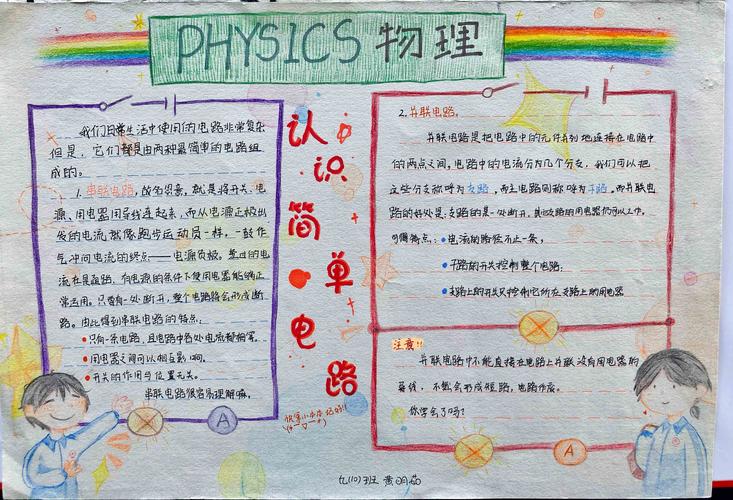 PHYSICS 物理
认识简单电路
我们日常生活中使用的电路非常复杂
但是，它们都是由两种最简单的电路组
成的。
1. 串联电路，故名思意，就是将开关、电
源、用电器用导线连起来，而从电源正极出
发的电流就像跑步运动员一样，一鼓作
气冲向电流的终点——电源负极。整过的电
流在是通路，有电源的条件下使用电器能够正
常运用。只要有一处断开，整个电路将会形成断
路。由此得到串联电路的特点：
只有一条电路，且电路中各处电流都相等。
用电器之间可以相互影响。
开关的作用与位置无关。
串联电路很容易理解嘛，
快拿小本本记好！！
2. 并联电路。
并联电路是把电路中的元件并列地连接在电路中
的两点之间，电路中的电流分为几个分支，我们可以把
这些分支称呼为支路，而主电路则称呼为干路。而并联电
路的好处是：支路的是一处断开，其他支路的用电器仍可以工作。
可得特点：电流的路径不止一条，
干路的开关控制整个电路；
支路上的开关只控制它所在支路上的用电器
注意!!
并联电路中不能直接在电路上并联没有用电器的
导线，不然会形成短路，电路作废。
你学会了吗？
A
A
九(10)班 黄明茹